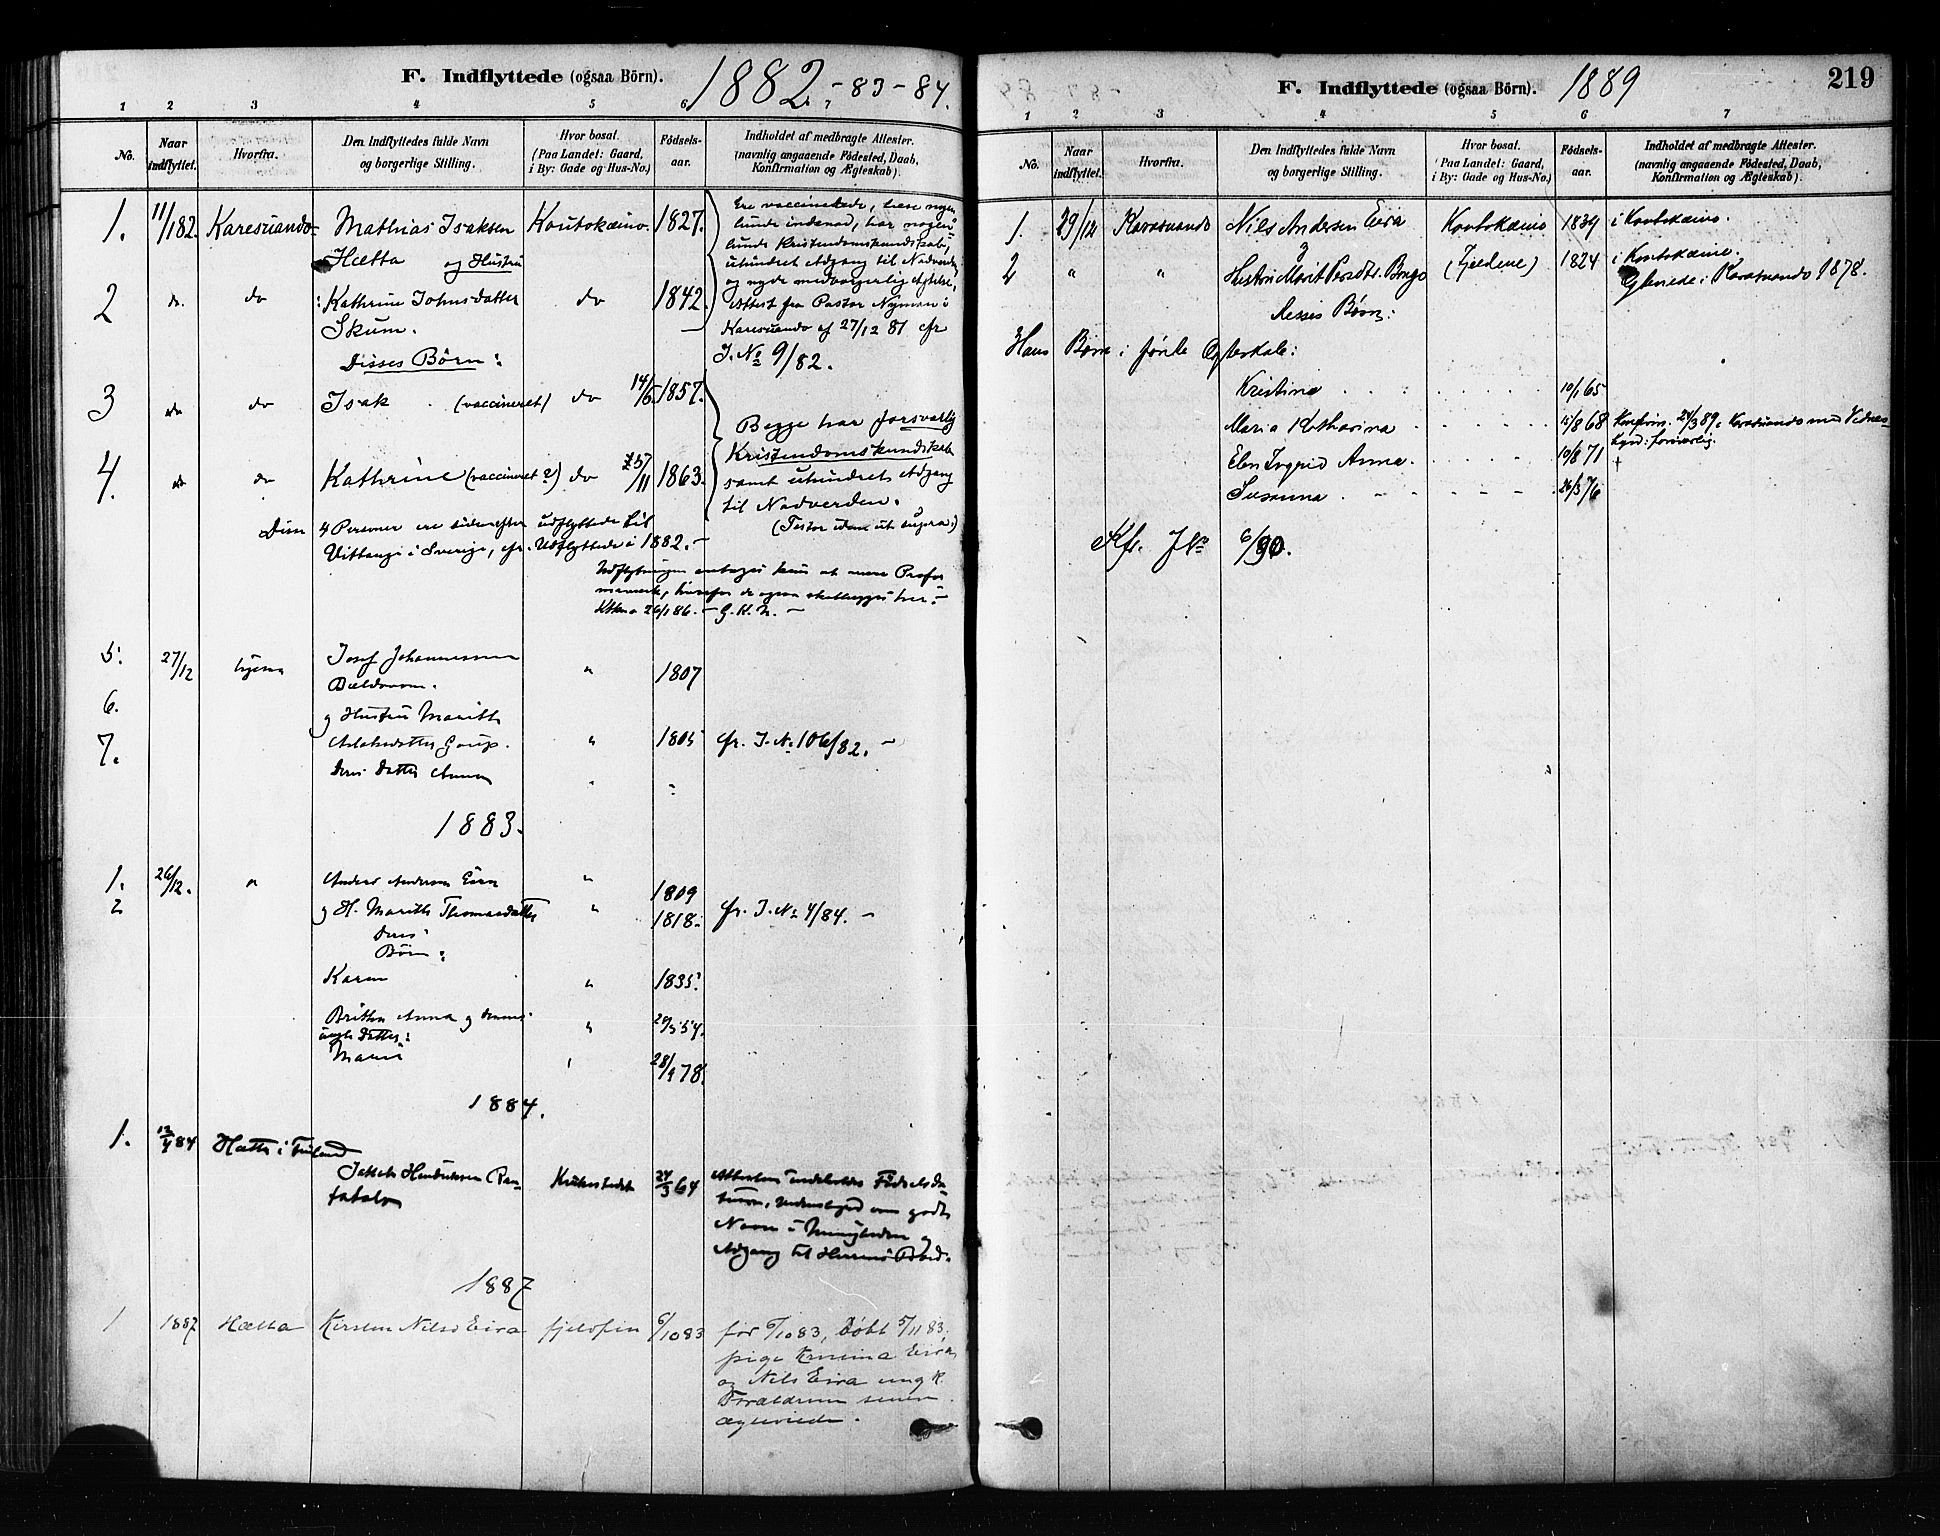 F. Indflyttede (ogsaa Börn). 1882-83-84.
1 2 3 4 5 6 7
No.
Naar indflyttet.
Hvorfra.
Den Indflyttedes fulde Navn og borgerlige Stilling.
Hvor bosat. (Paa Landet: Gaard, i By: Gade og Hus-No.)
Fødsels-aar.
Indholdet af medbragte Attester. (navnlig angaaende Fødested, Daab, Konfirmation og Ægteskab).
1. 11/1 82. Karesuando Mathias Isaksen Koutokeino. 1827.
Hætta og Hustru
2 do. do Kathrine Johnsdatter do 1842.
Skum.
Disses Börn:
Ere vaccinerede, læse nogen-
lunde indenad, har nogen-
lunde Kristendomskundskab,
uhindret Adgang til Nadverden
og nyde medborgerlig Agtelse,
Attest fra Pastor Nyman i
Karesuando af 27/12 81 cfr
J. No 9/82.
3 do do Isak (vaccineret) do 14/5 1857.
4. do do Kathrine (vaccineret) do 25/11 1863.
Begge har forsvarlig
Kristendomskundskab
samt uhindret Adgang
til Nadverden.
(Testor idem ut supra.)
Disse 4 Personer ere siden efter udflyttede til
Vittangi i Sverige, cfr. Udflyttede i 1882. -
Udflytningen antages kun at være Profor
26/1 86. - G. K. N. -
5. 27/12 Josef Johannessen " 1807
6. og Hustru Marith
7. Aslaksdatter Gaup. " 1805 cfr. J. No 106/82. -
Deres Datter Anna " "
1883.
1. 26/12. " Anders Andersen Eira " 1809
2 og H. Marith Thomasdatter " 1818. cfr. J. No 4/84. -
Deres
Börn:
Karen " 1835.
Britha Anna og dennes " 54.
uegte Datter:
Marie 78.
1884.
1. 84 Hætta i Finland
Jakob Hendriksen Ran-
tatalo Kirkestedet 24/3 64
Attesten indeholder Fødselsda-
tum, Vidnesbyrd om godt
Navn i Menigheden og
Adgang til Herrens Bord.
1887
1 1887 Hætta Kirsten Nilsd Eira fjelsfin 6/10 83 för 6/10 83, Döbt 5/11 83,
pige Eira
og Nils Eira ungk.
Forældrene senere
ægteviede.
F. Indflyttede (ogsaa Börn). 1889 219
1 2 3 4 5 6 7
No.
Naar indflyttet.
Hvorfra.
Den Indflyttedes fulde Navn og borgerlige Stilling.
Hvor bosat. (Paa Landet: Gaard, i By: Gade og Hus-No.)
Fødsels-aar.
Indholdet af medbragte Attester. (navnlig angaaende Fødested, Daab, Konfirmation og Ægteskab).
1. 29/12 Karasuando Nils Andersen Eira Koutokæino 1834 i Koutokæino.
og
2 " " Hustru Marit Persdtr. Bongo (Fjeldene) 1824 i Koutokæino.
Egteviede i Karasuando 1878.
Desses Børn:
Hans Børn i første Egteskab:
Kristina 10/1 65
Maria Katharina 15/8 68 Konfirm. 24/3 89 i Karasuando med Vidnes-
byrd: forsvarlig.
Elen Ingrid Anna 10/8 71 +
Susanna 26/3 76
Kfr. J No 6/90.